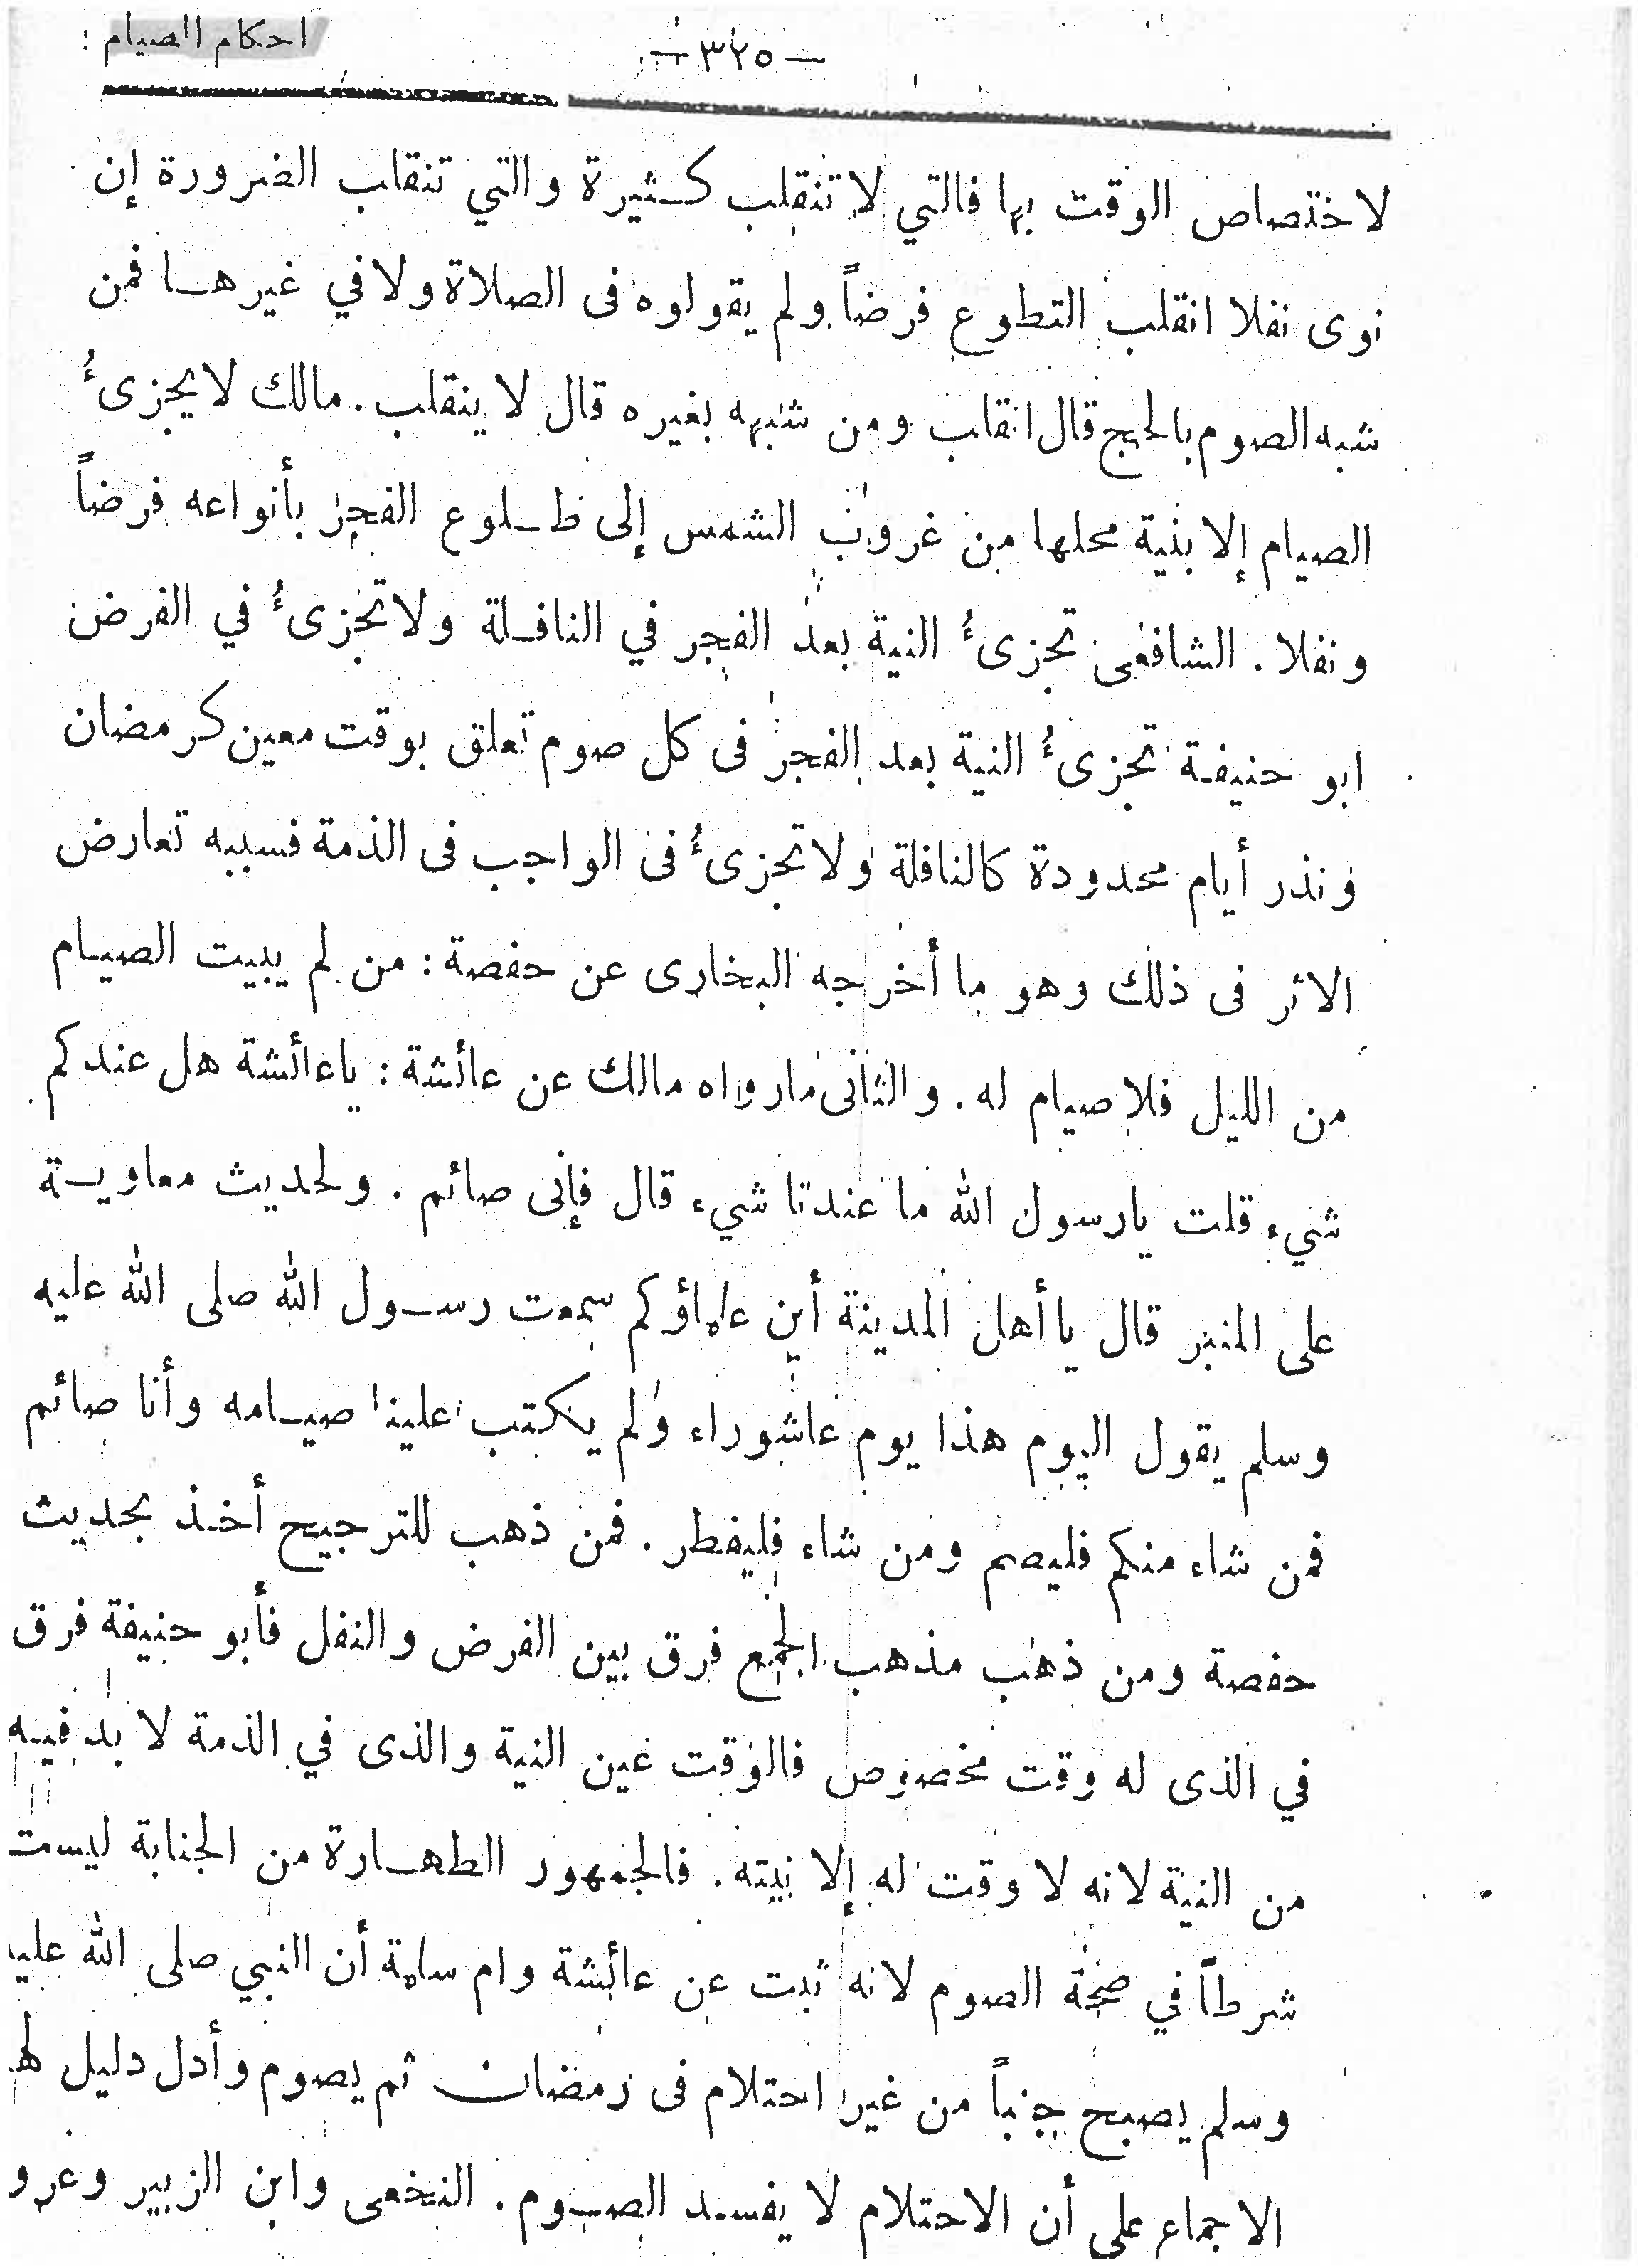 احكام الصيام :
— ٣٢٥ —
لاختصاص الوقت بها فالتي لا تنقلب كثيرة والتي تنقلب الضرورة إن
نوى نفلا انقلب التطوع فرضاً ولم يقولوه فى الصلاة ولا في غيرها فمن
شبه الصوم بالحج قال انقلب ومن شبهه بغيره قال لا ينقلب . مالك لا يجزىُٔ
الصيام إلا بنية محلها من غروب الشمس إلى طلوع الفجر بأنواعه فرضاً
ونفلا . الشافعى تجزىُٔ النية بعد الفجر في النافلة ولا تجزىُٔ في الفرض
ابو حنيفة تجزىُٔ النية بعد الفجر فى كل صوم تعلق بوقت معين كرمضان
ونذر أيام محدودة كالنافلة ولا تجزىُٔ فى الواجب فى الذمة فسببه تعارض
الاثر فى ذلك وهو ما أخرجه البخارى عن حفصة : من لم يبيت الصيام
من الليل فلا صيام له . والثانى مارواه مالك عن عائشة : ياعائشة هل عندكم
شيء قلت يارسول الله ما عندنا شيء قال فإنى صائم . ولحديث معاوية
على المنبر قال يا أهل المدينة أين علماؤكم سمعت رسول الله صلى الله عليه
وسلم يقول اليوم هذا يوم عاشوراء ولم يكتب علينا صيامه وأنا صائم
فمن شاء منكم فليصم ومن شاء فليفطر . فمن ذهب للترجيح أخذ بحديث
حفصة ومن ذهب مذهب الجمع فرق بين الفرض والنفل فأبو حنيفة فرق
في الذى له وقت مخصوص فالوقت عين النية والذى في الذمة لا بد فيه
من النية لانه لا وقت له إلا نيته . فالجمهور الطهارة من الجنابة ليست
شرطاً في صحة الصوم لانه ثبت عن عائشة وام سلمة أن النبي صلى الله عليه
وسلم يصبح جنباً من غير احتلام فى رمضان ثم يصوم وأدل دليل لهم
الاجماع على أن الاحتلام لا يفسد الصوم . النخعى وابن الزبير وعرو